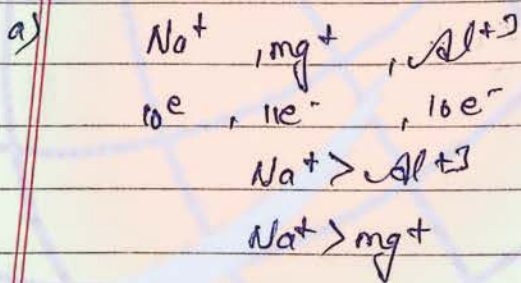 a) Na⁺ , mg⁺ , Al⁺³
10e , 11e⁻ , 10e⁻
Na⁺ > Al⁺³
Na⁺ > mg⁺